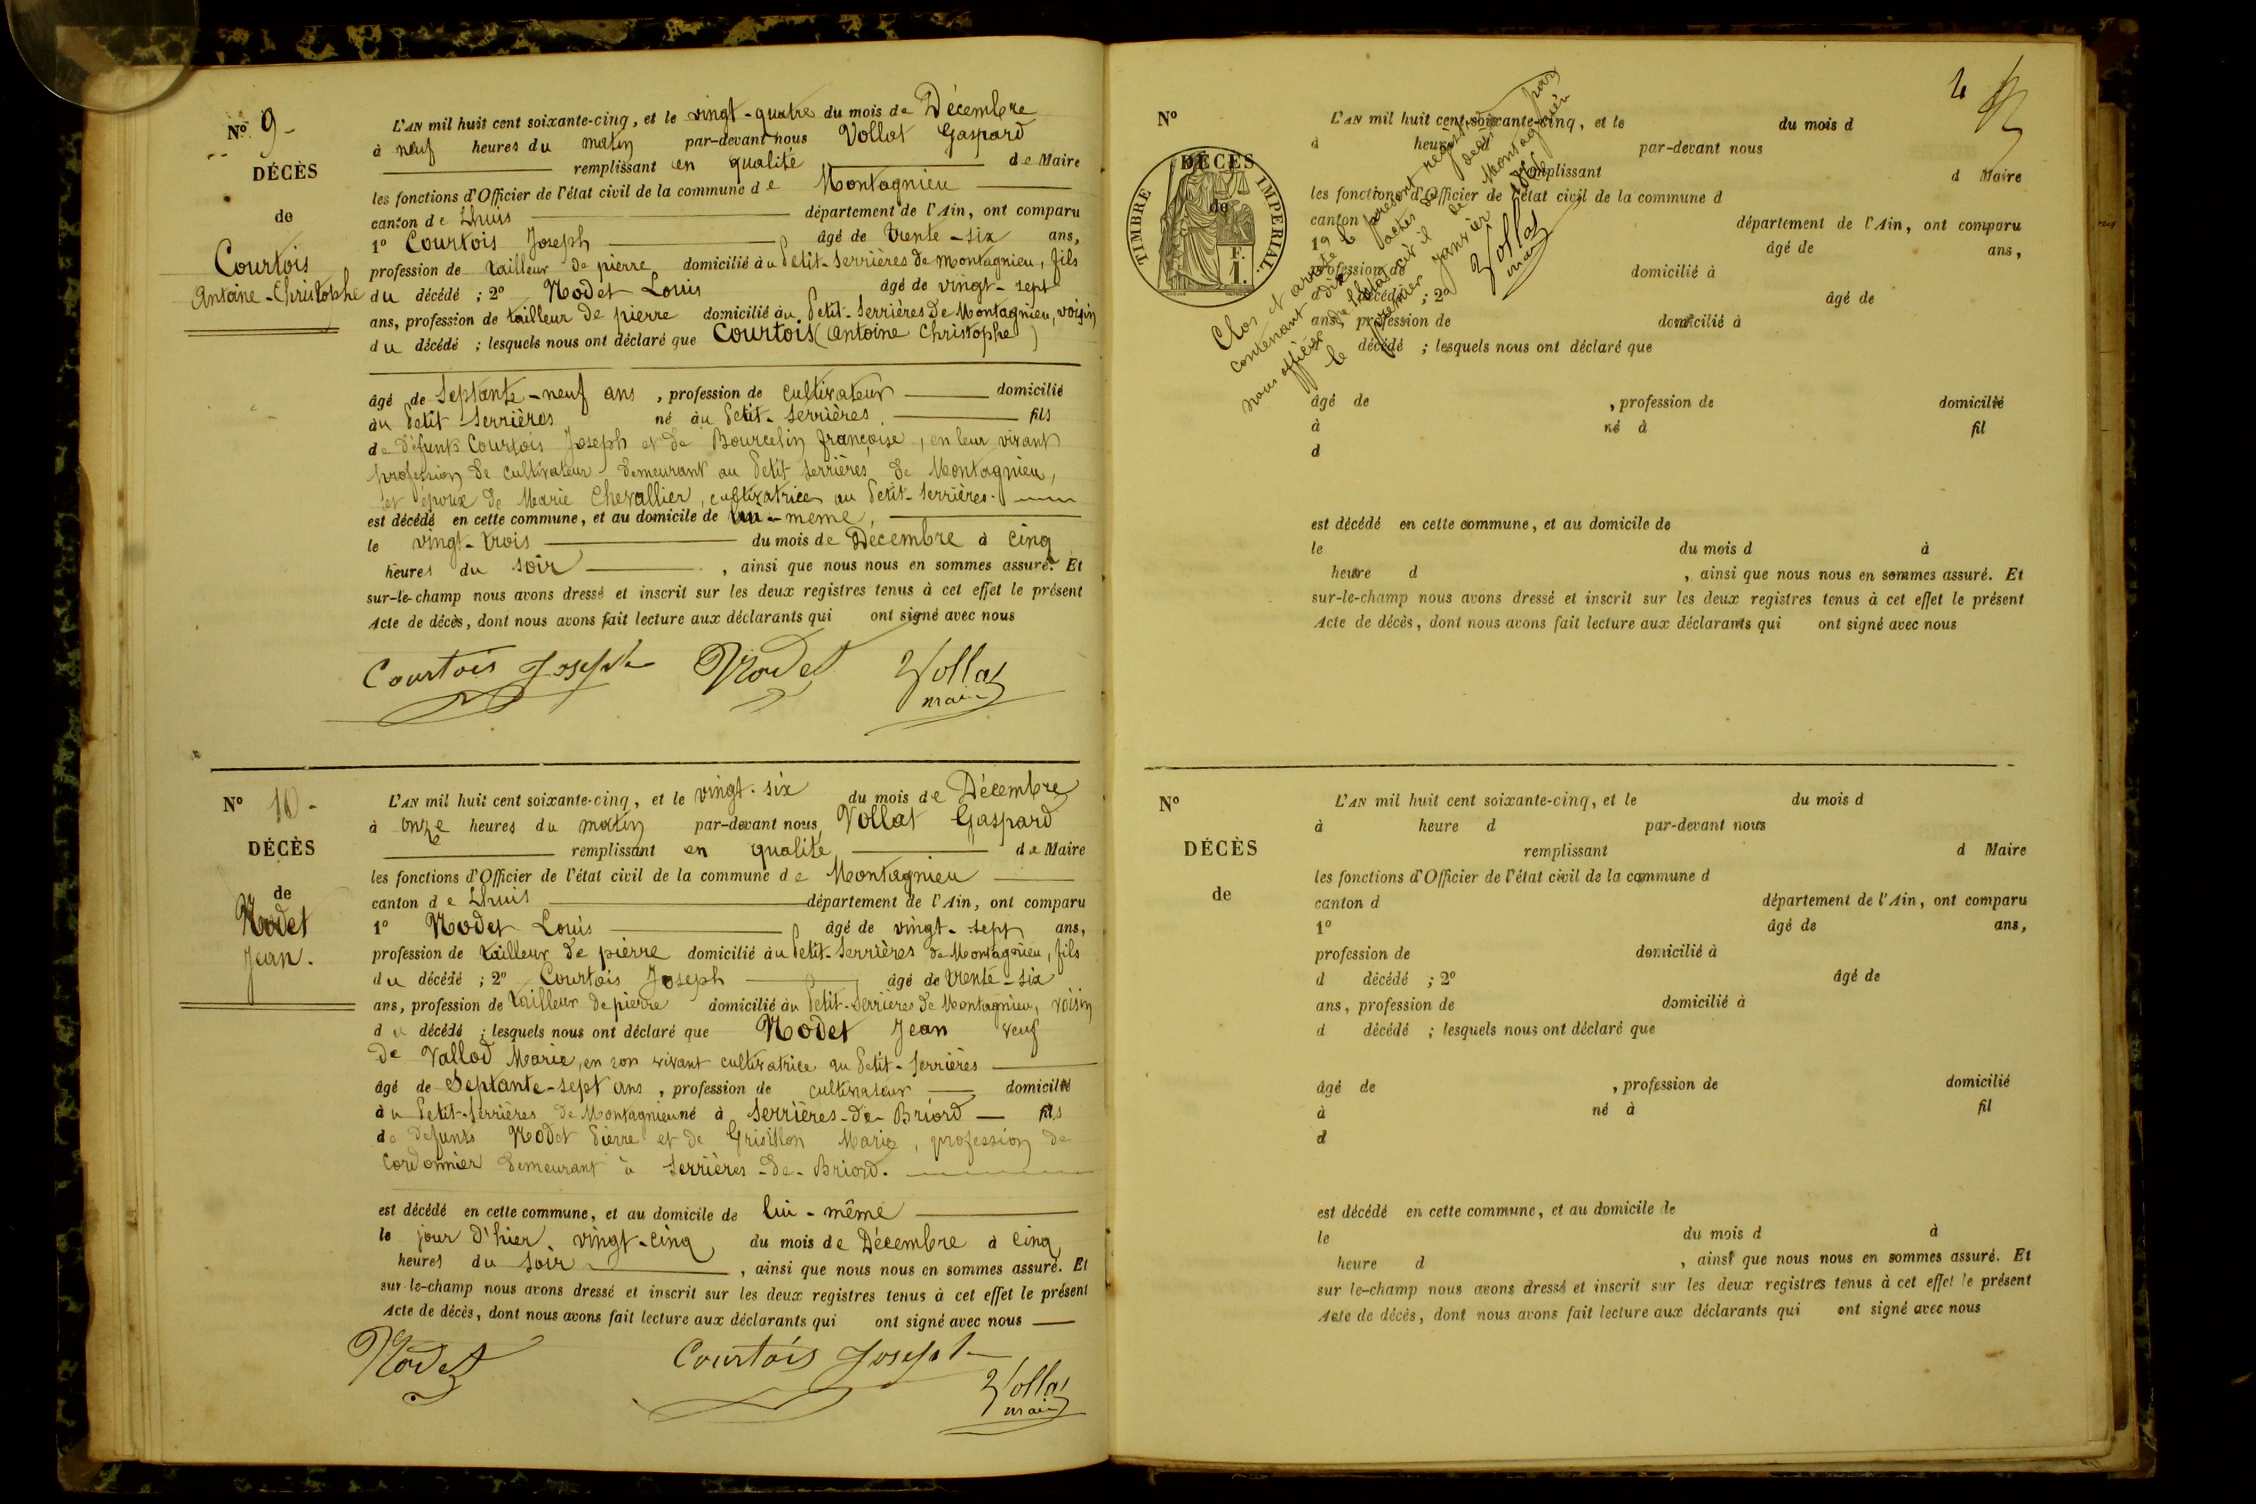 N° 9-
DÉCÈS
de
Courtois
Antoine-Christophe
L'AN mil huit cent soixante-cinq, et le vingt-quatre du mois de Décembre
à neuf heures du matin par-devant nous Vollat Gaspard
remplissant en qualité de Maire
les fonctions d'Officier de l'état civil de la commune de Montagnieu
canton de Lhuis département de l'Ain, ont comparu
1° Courtois Joseph âgé de trente-six ans,
profession de tailleur de pierre domicilié au Petit-Serrières de Montagnieu, fils
du décédé ; 2° Nodet Louis âgé de vingt-sept
ans, profession de tailleur de pierre domicilié au Petit-Serrières de Montagnieu, voisin
du décédé ; lesquels nous ont déclaré que Courtois (Antoine Christophe)
âgé de Septante-neuf ans, profession de cultivateur domicilié
au Petit Serrières né au Petit-Serrières fils
de défunts Courtois Joseph et de Bourcelin françoise, en leur vivant
profession de cultivateur demeurant au Petit Serrières de Montagnieu,
et époux de Marie Chevallier, cultivatrice au Petit-Serrières.
est décédé en cette commune, et au domicile de lui-meme,
le vingt-trois du mois de Décembre à cinq
heures du soir, ainsi que nous nous en sommes assuré. Et
sur-le-champ nous avons dressé et inscrit sur les deux registres tenus à cet effet le présent
Acte de décès, dont nous avons fait lecture aux déclarants qui ont signé avec nous
Courtois Joseph Nodet Vollat
maire
N° 10-
DÉCÈS
de
Nodet
Jean.
L'AN mil huit cent soixante-cinq, et le vingt-six du mois de Décembre
à onze heures du matin par-devant nous Vollat Gaspard
remplissant en qualité de Maire
les fonctions d'Officier de l'état civil de la commune de Montagnieu
canton de Lhuis département de l'Ain, ont comparu
1° Nodet Louis âgé de vingt-sept ans,
profession de tailleur de pierre domicilié au Petit-Serrières de Montagnieu, fils
du décédé ; 2° Courtois Joseph âgé de trente-six
ans, profession de tailleur de pierre domicilié au Petit-Serrières de Montagnieu, voisin
du décédé ; lesquels nous ont déclaré que Nodet Jean veuf
de Vallod Marie, en son vivant cultivatrice au Petit-Serrières
âgé de Septante-sept ans, profession de cultivateur domicilié
au Petit-Serrières de Montagnieu né à Serrières-de-Briord fils
de défunts Nodet Pierre et de Marie, profession de
cordonnier demeurant à Serrières-de-Briord.
est décédé en cette commune, et au domicile de lui-même
le jour d'hier vingt-cinq du mois de Décembre à cinq
heures du soir, ainsi que nous nous en sommes assuré. Et
sur-le-champ nous avons dressé et inscrit sur les deux registres tenus à cet effet le présent
Acte de décès, dont nous avons fait lecture aux déclarants qui ont signé avec nous
Nodet Courtois Joseph Vollat
maire
4
N°
DÉCÈS
de
TIMBRE IMPERIAL.
F.
1.
L'AN mil huit cent soixante-cinq, et le du mois d
à heure d par-devant nous
remplissant d Maire
les fonctions d'Officier de l'état civil de la commune d
canton d département de l'Ain, ont comparu
1° âgé de ans,
profession de domicilié à
d décédé ; 2° âgé de
ans, profession de domicilié à
d décédé ; lesquels nous ont déclaré que
âgé de , profession de domicilié
à né à fil
d
est décédé en cette commune, et au domicile de
le du mois d à
heure d , ainsi que nous nous en sommes assuré. Et
sur-le-champ nous avons dressé et inscrit sur les deux registres tenus à cet effet le présent
Acte de décès, dont nous avons fait lecture aux déclarants qui ont signé avec nous
Clos et arrêté le présent registre
contenant dix actes de décès par
nous officier de l'état civil de Montagnieu
le premier janvier
Vollat
maire
N°
DÉCÈS
de
L'AN mil huit cent soixante-cinq, et le du mois d
à heure d par-devant nous
remplissant d Maire
les fonctions d'Officier de l'état civil de la commune d
canton d département de l'Ain, ont comparu
1° âgé de ans,
profession de domicilié à
d décédé ; 2° âgé de
ans, profession de domicilié à
d décédé ; lesquels nous ont déclaré que
âgé de , profession de domicilié
à né à fil
d
est décédé en cette commune, et au domicile de
le du mois d à
heure d , ainsi que nous nous en sommes assuré. Et
sur le-champ nous avons dressé et inscrit sur les deux registres tenus à cet effet le présent
Acte de décès, dont nous avons fait lecture aux déclarants qui ont signé avec nous